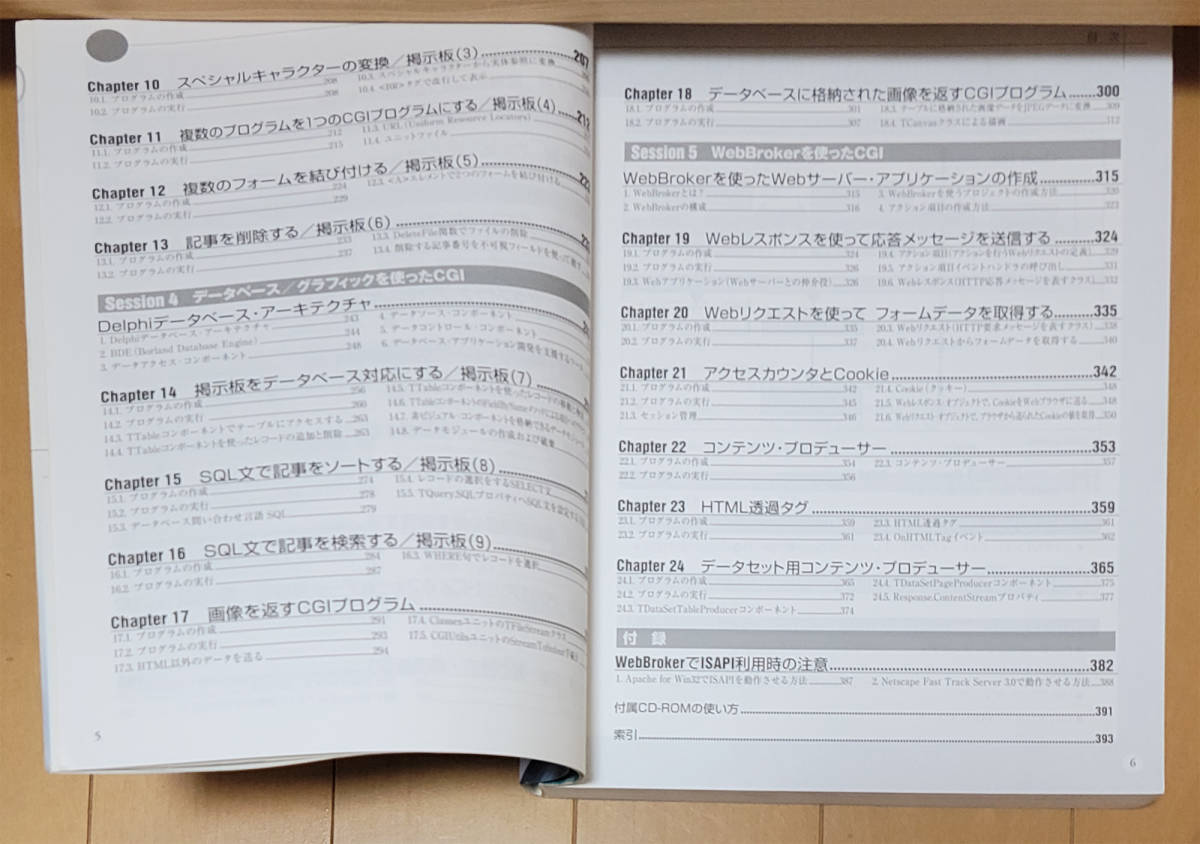 Chapter 10 スペシャルキャラクターの変換／掲示板(3) 207
10.1. プログラムの作成 208 10.3. スペシャルキャラクターから実体参照に変換
10.2. プログラムの実行 208 10.4. <BR>タグで改行して表示
Chapter 11 複数のプログラムを1つのCGIプログラムにする／掲示板(4) 212
11.1. プログラムの作成 212 11.3. URL(Uniform Resource Locators)
11.2. プログラムの実行 215 11.4. ユニットファイル
Chapter 12 複数のフォームを結び付ける／掲示板(5)
12.1. プログラムの作成 224 12.3. <A>エレメントで2つのフォームを結び付ける
12.2. プログラムの実行 229
Chapter 13 記事を削除する／掲示板(6)
13.1. プログラムの作成 233 13.3. DeleteFile関数でファイルの削除
13.2. プログラムの実行 237 13.4. 削除する記事番号を不可視フィールドを使って
Session 4 データベース／グラフィックを使ったCGI
Delphiデータベース・アーキテクチャ
1. Delphiデータベース・アーキテクチャ 243 4. データソース・コンポーネント
2. BDE(Borland Database Engine) 244 5. データコントロール・コンポーネント
3. データアクセス・コンポーネント 248 6. データベース・アプリケーション開発を支援する
Chapter 14 掲示板をデータベース対応にする／掲示板(7)
14.1. プログラムの作成 256 14.5. TTableコンポーネントを使ったレコードの
14.2. プログラムの実行 260 14.6. TTableコンポーネントのFieldByNameメソッドによる
14.3. TTableコンポーネントでテーブルにアクセスする 263 14.7. 非ビジュアル・コンポーネントを格納できるデータモジュール
14.4. TTableコンポーネントを使ったレコードの追加と削除 263 14.8. データモジュールの作成および破棄
Chapter 15 SQL文で記事をソートする／掲示板(8)
15.1. プログラムの作成 274 15.4. レコードの選択をするSELECT文
15.2. プログラムの実行 278 15.5. TQuery.SQLプロパティへSQL文を設定する
15.3. データベース問い合わせ言語 SQL 279
Chapter 16 SQL文で記事を検索する／掲示板(9)
16.1. プログラムの作成 284 16.3. WHERE句でレコードを選択
16.2. プログラムの実行 287
Chapter 17 画像を返すCGIプログラム
17.1. プログラムの作成 291 17.4. ClassesユニットのTFileStreamクラス
17.2. プログラムの実行 293 17.5. CGIUtilsユニットの
17.3. HTML以外のデータを送る 294
5
目 次
Chapter 18 データベースに格納された画像を返すCGIプログラム 300
18.1. プログラムの作成 301 18.3. テーブルに格納された画像データをJPEGデータに変換 309
18.2. プログラムの実行 307 18.4. TCanvasクラスによる描画 312
Session 5 WebBrokerを使ったCGI
WebBrokerを使ったWebサーバー・アプリケーションの作成 315
1. WebBrokerとは? 315 3. WebBrokerを使うプロジェクトの作成方法 320
2. WebBrokerの構成 316 4. アクション項目の作成方法 323
Chapter 19 Webレスポンスを使って応答メッセージを送信する 324
19.1. プログラムの作成 324 19.4. アクション項目(アクションを行うWebリクエストの定義) 329
19.2. プログラムの実行 326 19.5. アクション項目イベントハンドラの呼び出し 331
19.3. Webアプリケーション(Webサーバーとの仲介役) 326 19.6. Webレスポンス(HTTP応答メッセージを表すクラス) 332
Chapter 20 Webリクエストを使って フォームデータを取得する 335
20.1. プログラムの作成 335 20.3. Webリクエスト(HTTP要求メッセージを表すクラス) 338
20.2. プログラムの実行 337 20.4. Webリクエストからフォームデータを取得する 340
Chapter 21 アクセスカウンタとCookie 342
21.1. プログラムの作成 342 21.4. Cookie(クッキー) 348
21.2. プログラムの実行 345 21.5. Webレスポンス・オブジェクトで、CookieをWebブラウザに送る 348
21.3. セッション管理 346 21.6. Webリクエスト・オブジェクトで、ブラウザから送られたCookieの値を取得 350
Chapter 22 コンテンツ・プロデューサー 353
22.1. プログラムの作成 354 22.3. コンテンツ・プロデューサー 357
22.2. プログラムの実行 356
Chapter 23 HTML透過タグ 359
23.1. プログラムの作成 359 23.3. HTML透過タグ 361
23.2. プログラムの実行 361 23.4. OnHTMLTagイベント 362
Chapter 24 データセット用コンテンツ・プロデューサー 365
24.1. プログラムの作成 365 24.4. TDataSetPageProducerコンポーネント 375
24.2. プログラムの実行 372 24.5. Response.ContentStreamプロパティ 377
24.3. TDataSetTableProducerコンポーネント 374
付 録
WebBrokerでISAPI利用時の注意 382
1. Apache for Win32でISAPIを動作させる方法 387 2. Netscape Fast Track Server 3.0で動作させる方法 388
付属CD-ROMの使い方 391
索引 393
6